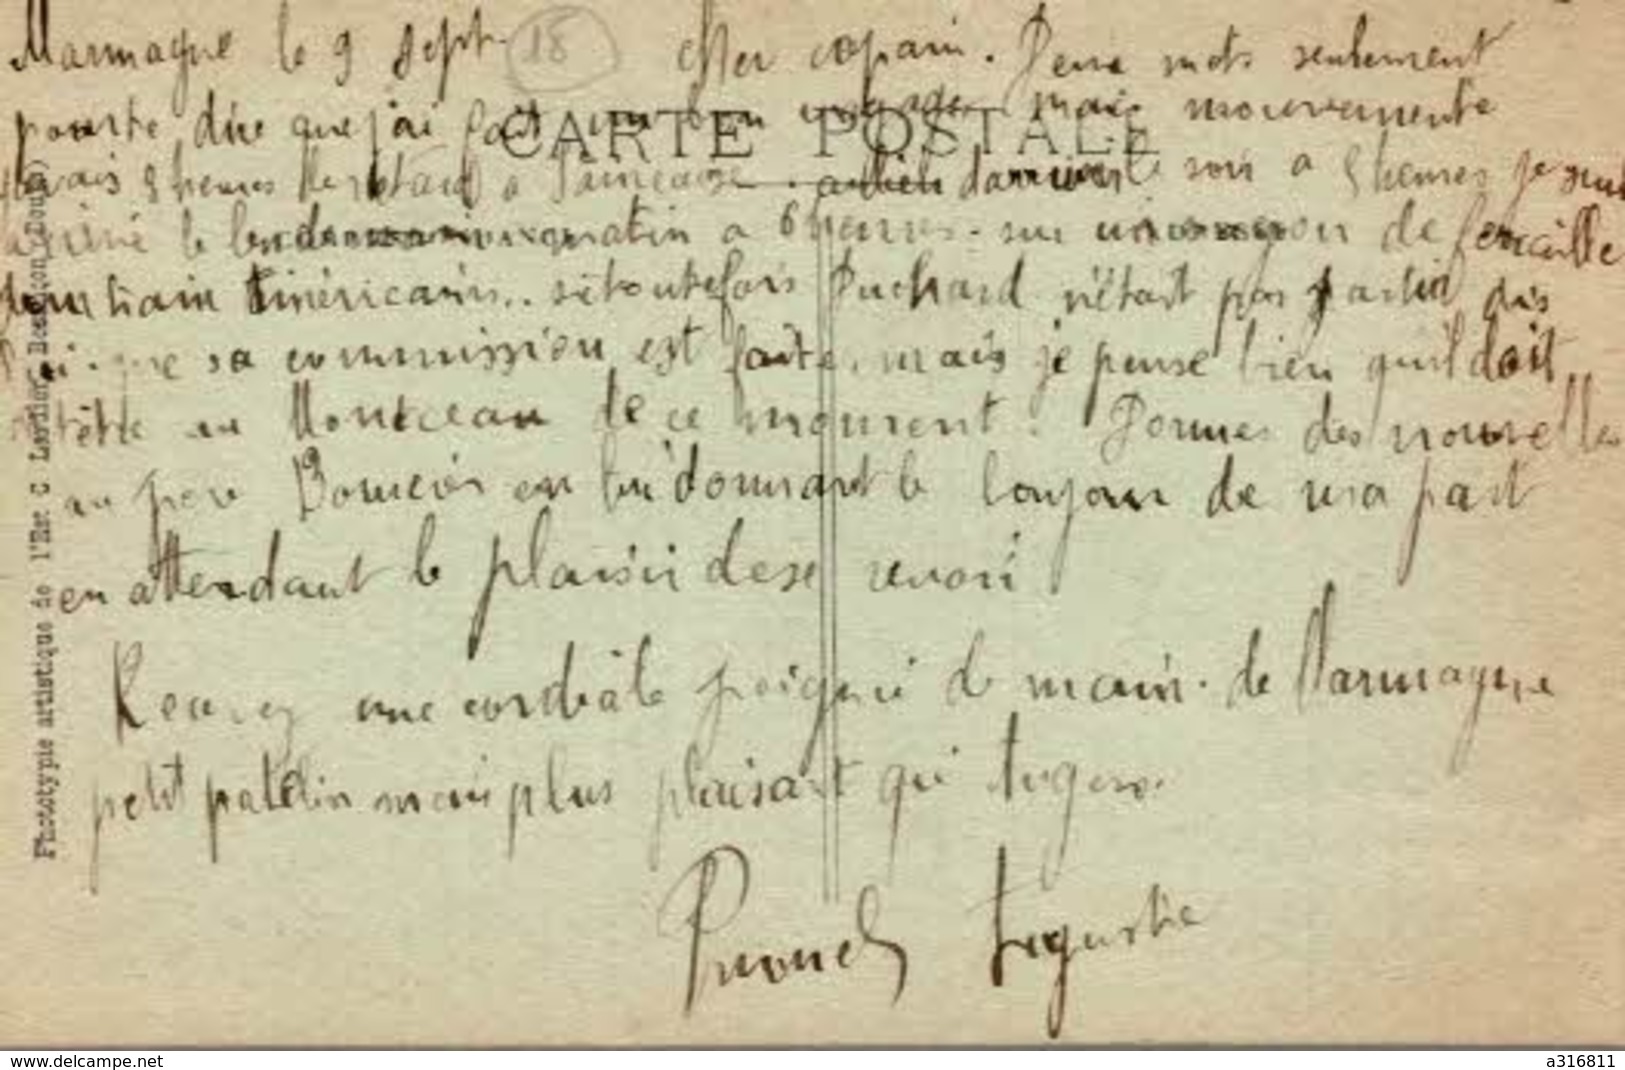 Marmagne le 9 sept. 18 Cher copain. Deux mots seulement
CARTE POSTALE
pourte dire que j'ai fait un bon voyage mais mouvementé
javais 5 heures de retard a au lieu darriver le soir a 5 heures je suis
arrivé le lendemain matin a 6 heures. sur un wagon de ferraille
dun train américain.. si toutefois Puchard n'était pas partit dis
lui que sa commission est faite, mais je pense bien qu'il doit
être au Montceau de ce moment. Donnes des nouvelles
au père en lui donnant le bonjour de ma part
en attendant le plaisir dese revoir
Recevez une cordiale poignée de main. de Marmagne
petit patelin mais plus plaisant qui
Phototypie artistique de l'Est C Lardier Besançon (Doubs)
www.delcampe.net
a316811